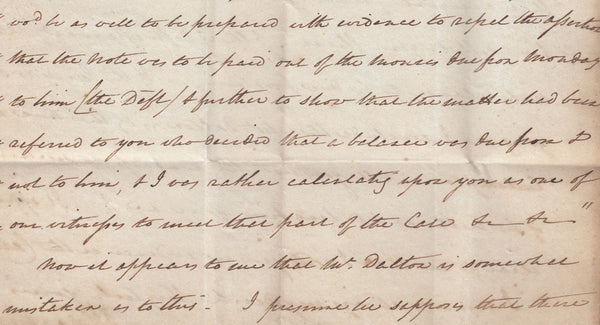 wod. be as well to be prepared with evidence to repel the assertion
that the Note was to be paid out of the monies due from Monday
to him (the Deft) & further to show that the matter had been
referred to you who decided that a balance was due from &
not to him, & I was rather calculating upon you as one of
our witnesses to meet that part of the Case &c &c "
Now it appears to me that Mr. Dalton is somewhat
mistaken as to this - I presume he supposes that there